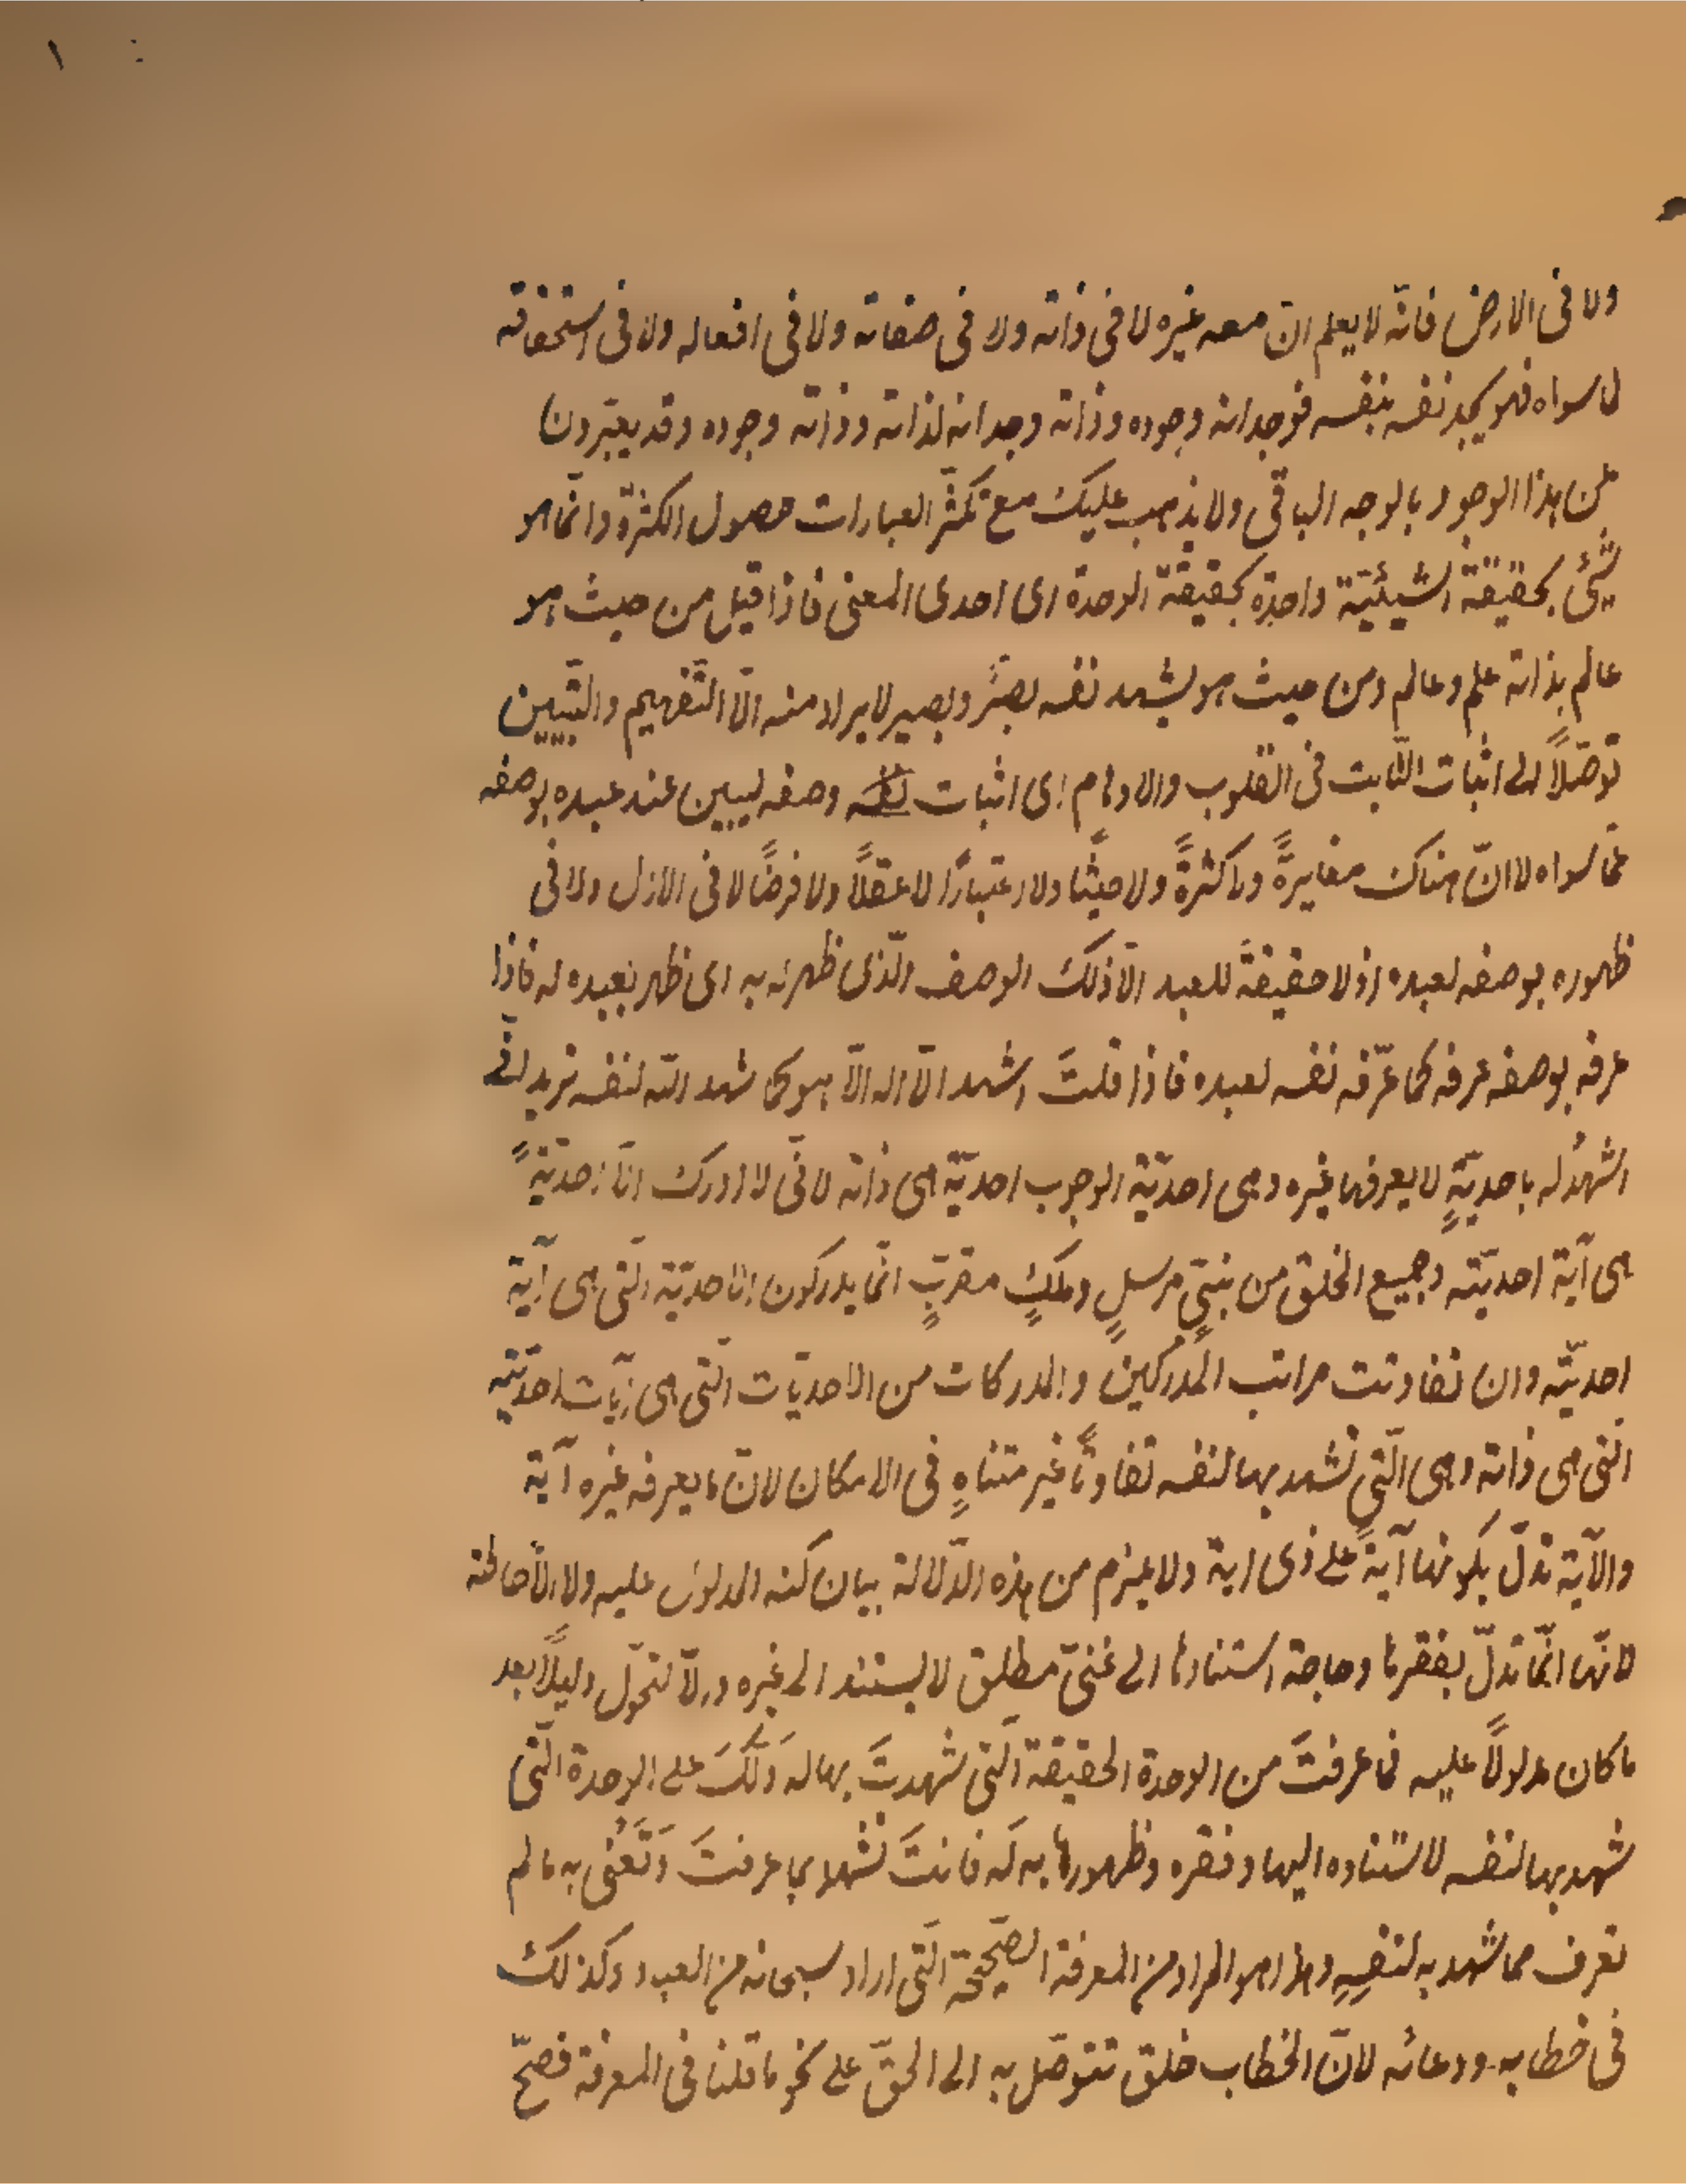 ١
ولا فى الارض فانّه لا يعلم انّ معه غيره لا فى ذاته ولا فى صفاته ولا فى افعاله ولا فى استحقاقه
لما سواه فهو يجد نفسه بنفسه فوجدانه وجوده وذاته وجدانه لذاته وذاته وجوده وقد يعبّرون
عن هذا الوجود بالوجه الباقى ولا يذهب عليك مع تكثّر العبارات حصول الكثرة وانّما هو
شيئ بحقيقة الشيئيّة واحدة بحقيقة الوحدة اى احدى المعنى فاذا قيل من حيث هو
عالم بذاته علم وعالم ومن حيث هو يشهد نفسه بصَرٌ وبصير لا يراد منه الّا التّفهيم والتّبيين
توصّلاً الى اثبات الثّابت فى القلوب والاوهام اى اثبات وصفه ليبين عند عبده بوصفه
عمّا سواه لا انّ هناك مغايرةً ولا كثرةً ولا حيثًا ولا اعتبارًا لا عقلاً ولا فرضًا لا فى الازل ولا فى
ظهوره بوصفه لعبده اذ لا حقيقةَ للعبد الّا ذلك الوصف الّذى ظهر له به اى ظهر بعبده له فاذا
عرفه بوصفه عرفه كما عرّفه نفسه لعبده فاذا قلتَ اشهد الّا اله الّا هو كما شهد اللّه لنفسه تريد انّى
اشهدُ له باحديّةٍ لا يعرفها غيره وهى احديّة الوجوب احديّة هى ذاته لانّى لا ادرك الّا احديّةً
هى آية احديّته وجميع الخلق من نبىٍّ مرسلٍ وملكٍ مقرّبٍ انّما يدركون الاحديّة الّتى هى آية
احديّته وان تفاوتت مراتب المُدرِكينَ والمدركات من الاحديّات الّتى هى آيات احديّته
الّتى هى ذاته وهى الّتى تشهد بها لنفسه تفاوتًا غير متناهٍ فى الامكان لانّ ما يعرفه غيره آية
والآية تدلّ بكونها آيةً على ذى اية ولا يلزم من هذه الدّلالة بيان كنه المدلول عليه ولا الاحاطة
لانّها انّما تدلّ بفقرها وحاجة استنادها الى غنىّ مطلق لا يستند الى غيره والّا لتحوّل دليلاً بعد
ما كان مدلولاً عليه فما عرفتَ من الوحدة الحقيقة الّتى شهدتَ بها له دَلَّكَ على الوحدة الّتى
شهد بها لنفسه لاستناده اليها وفقره وظهورها به لَه فانتَ تشهد بما عرفتَ وَتَعْنى به ما لم
تعرف مما شهد به لنفسِهِ وهذا هو المراد من المعرفة الصّحيحة الّتى اراد سبحانه من العبد وكذلك
فى خطابه ودعائه لانّ الخطاب خلق تتوصّل به الى الحقّ على نحو ما قلنا فى المعرفة فصحّ